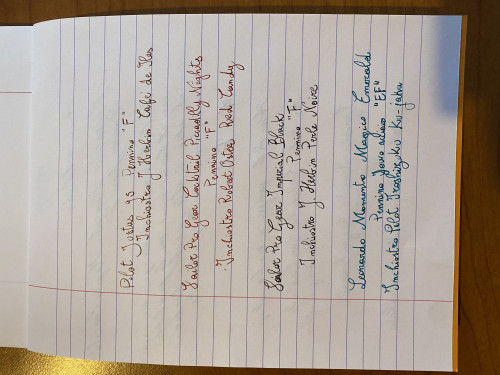 Pilot Justus 95 Pennino "F"
Inchiostro J. Herbin Café de Îles
Sailor Pro Gear Cocktail Piccadilly Nights
Pennino "F"
Inchiostro Robert Oster Red Candy
Sailor Pro Gear Imperial Black
Pennino "F"
Inchiostro J. Herbin Perle Noire
Leonardo Momento Magico Emerald
Pennino "EF"
Inchiostro Pilot Iroshizuku Ku-jaku